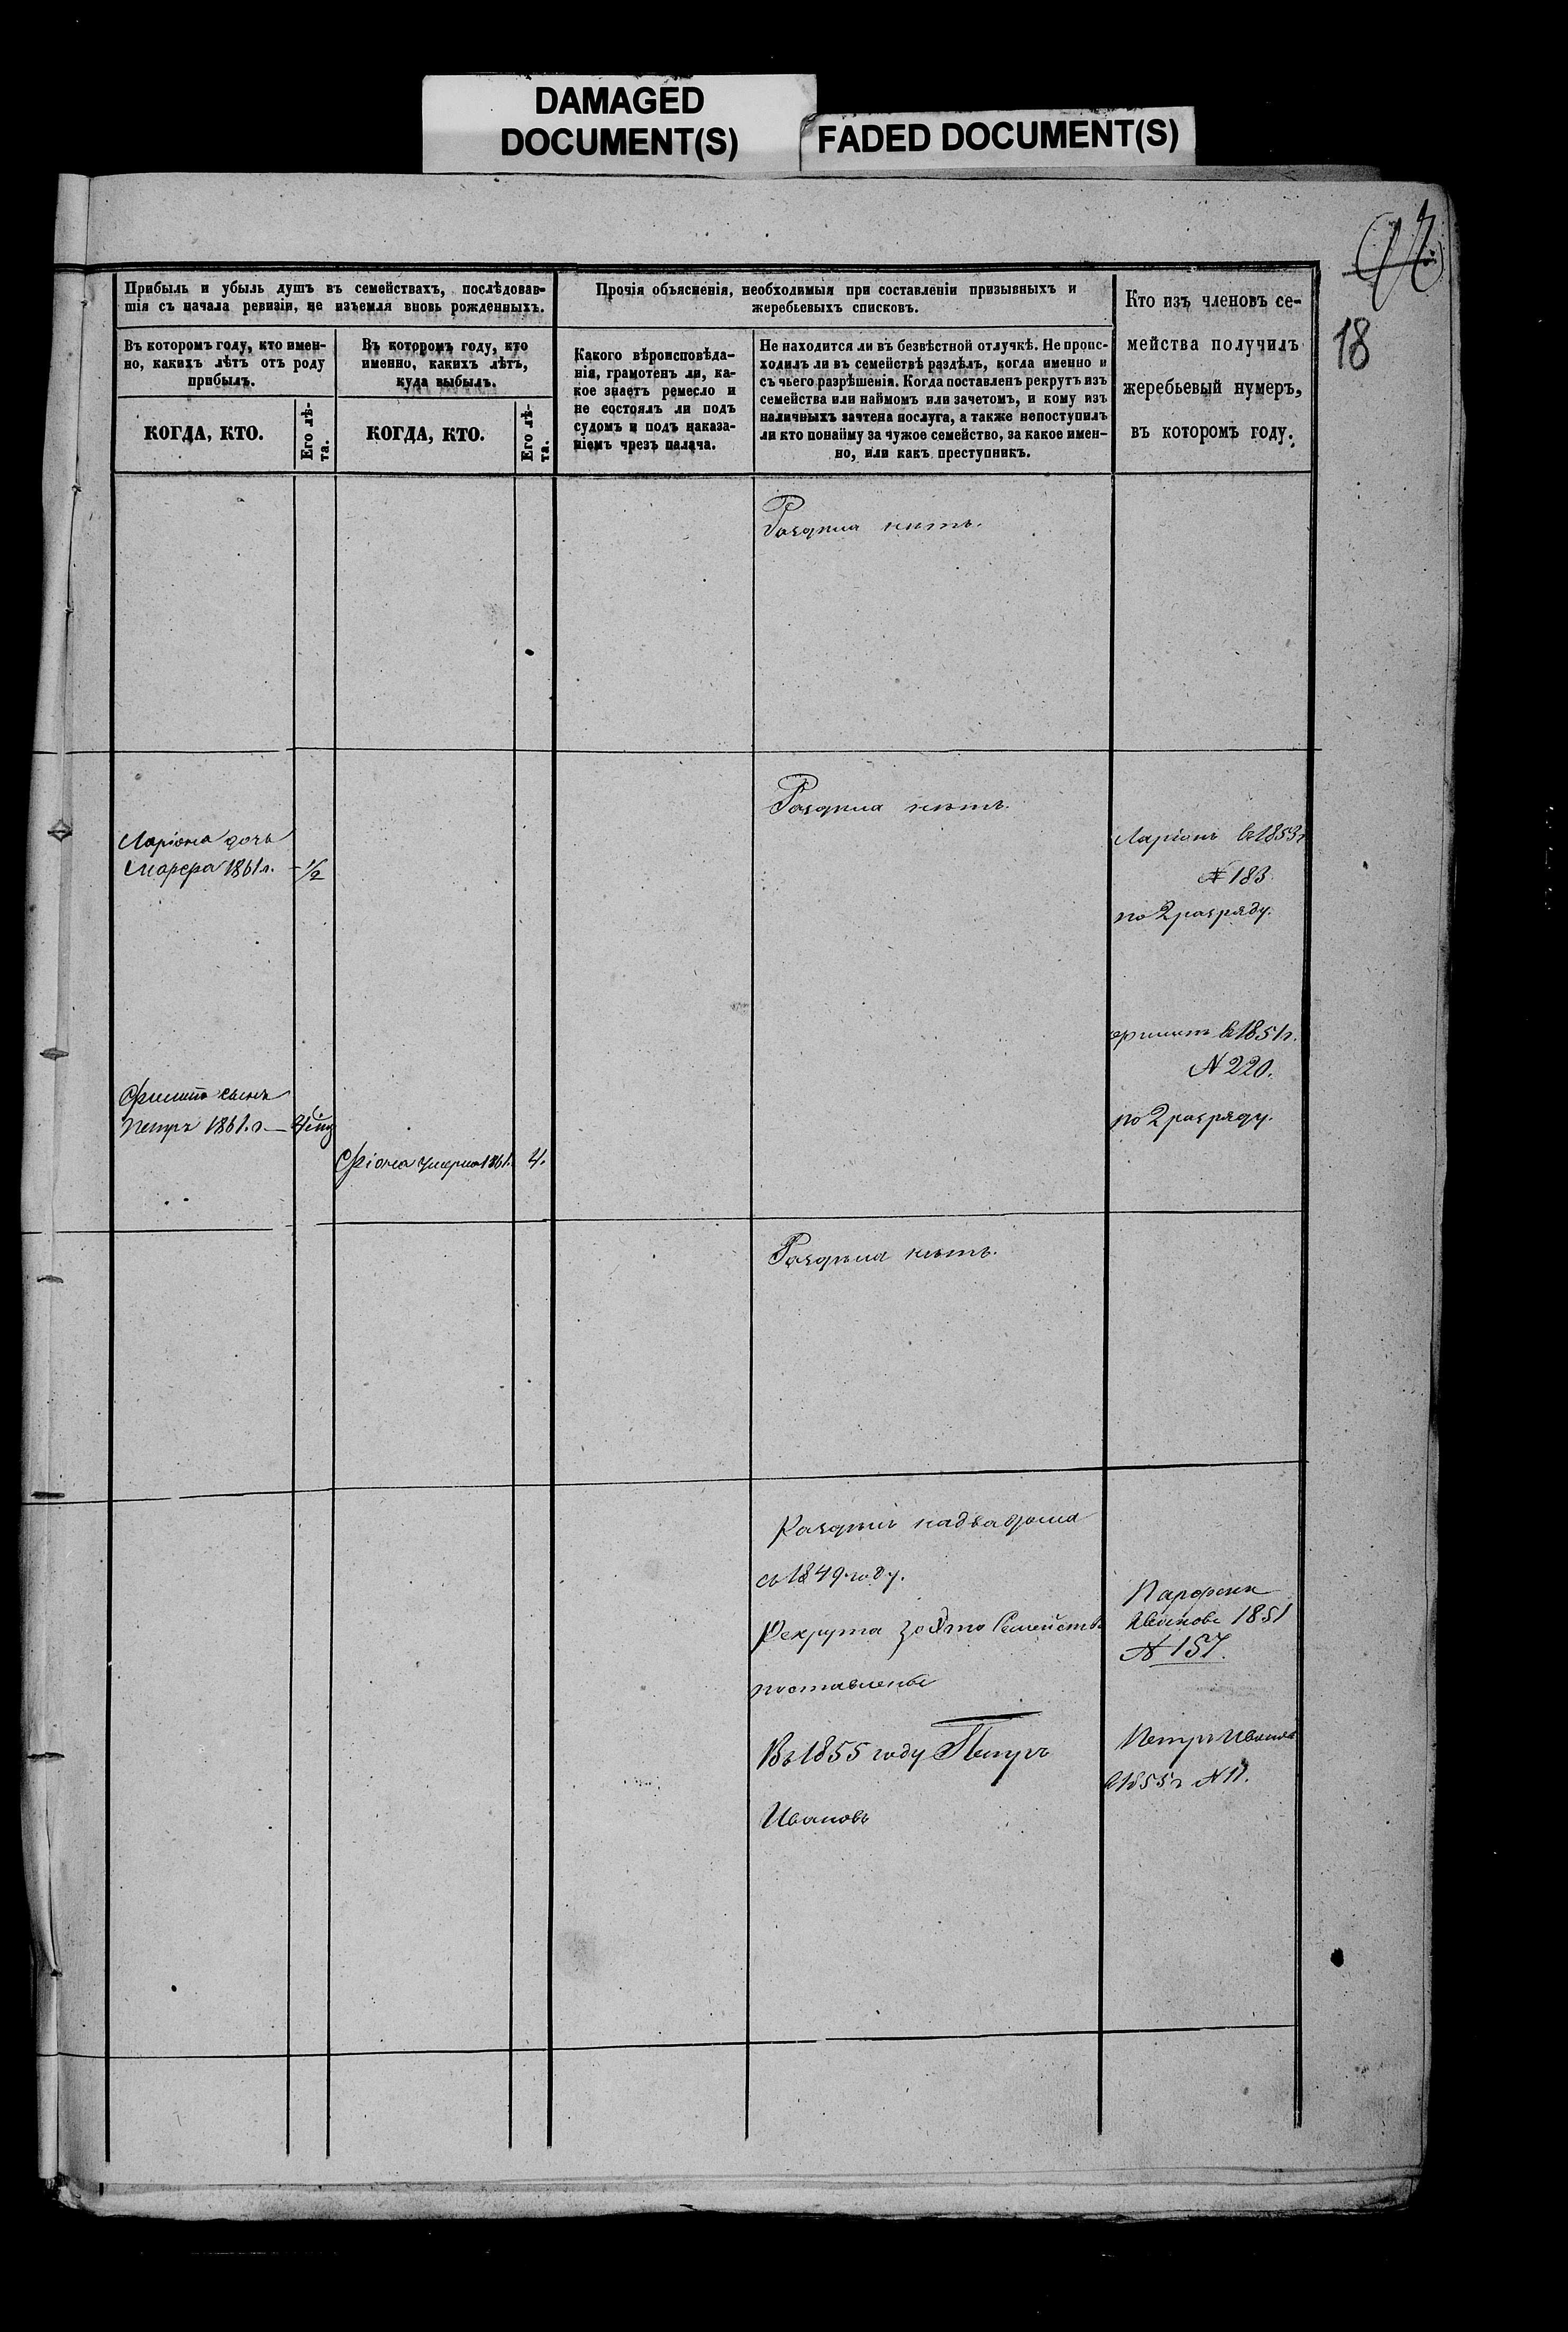 DAMAGED
DOCUMENT(S)
FADED DOCUMENT(S)
18
Прибыль и убыль душъ въ семействахъ, послѣдовав-
шія съ начала ревизіи, не изъемля вновь рожденныхъ.
Въ которомъ году, кто имен-
но, какихъ лѣтъ отъ роду
прибылъ.
КОГДА, КТО.
Его лѣ-
та.
Въ которомъ году, кто
именно, какихъ лѣтъ,
куда выбылъ.
КОГДА, КТО.
Его лѣ-
та.
Прочія объясненія, необходимыя при составленіи призывныхъ и
жеребьевыхъ списковъ.
Какого вѣроисповѣда-
нія, грамотенъ ли, ка-
кое знаетъ ремесло и
не состоялъ ли подъ
судомъ и подъ наказа-
ніемъ чрезъ палача.
Не находится ли въ безвѣстной отлучкѣ. Не проис-
ходилъ ли въ семействѣ раздѣлъ, когда именно и
съ чьего разрѣшенія. Когда поставленъ рекрутъ изъ
семейства или наймомъ или зачетомъ, и кому изъ
наличныхъ зачтена послуга, а также непоступилъ
ли кто понайму за чужое семейство, за какое имен-
но, или какъ преступникъ.
Кто изъ членовъ се-
мейства получилъ
жеребьевый нумеръ,
въ которомъ году.
Раздѣла нѣтъ.
Раздѣла нѣтъ.
Ларіона дочь
Марфа 1861 г. 1/2
Ларіонъ в 1853 г
№ 183
по 2 разряду.
в 1851 г.
N 220.
по 2 разряду.
Филипа сынъ
Петръ 1861. г.
умерла 1861. 4.
Раздѣла нѣтъ.
Раздѣлъ на два дома
съ 1849 году.
Рекрута
поставлены
Въ 1855 году Петръ
Ивановъ
Парфенъ
Ивановъ 1851
№ 157.
Петръ Ивановъ
в 1855 г № 11.